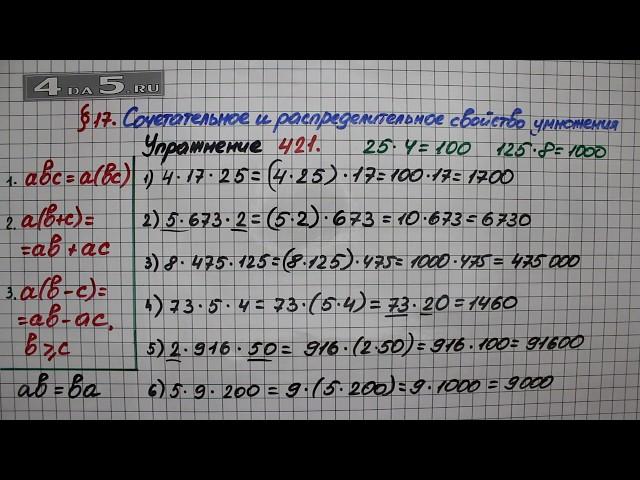 4 DA 5.RU
§17. Сочетательное и распределительное свойство умножения
Упражнение 421. 25·4=100 125·8=1000
1. abc = a(bc)
2. a(b+c)=
=ab+ac
3. a(b-c)=
=ab-ac,
b⩾c
ab=ba
1) 4·17·25=(4·25)·17=100·17=1700
2) 5·673·2=(5·2)·673=10·673=6730
3) 8·475·125=(8·125)·475=1000·475=475 000
4) 73·5·4=73·(5·4)=73·20=1460
5) 2·916·50=916·(2·50)=916·100=91600
6) 5·9·200=9·(5·200)=9·1000=9000